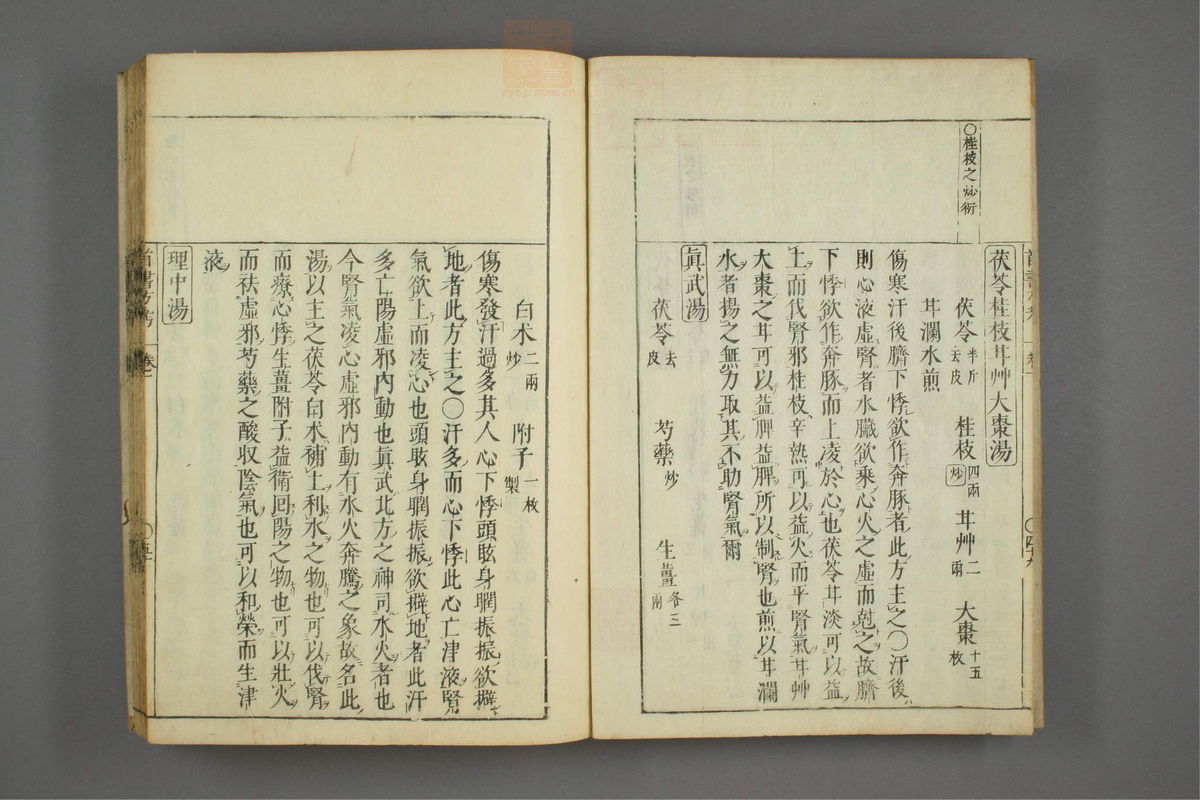 〇桂枝之炒衍
茯苓桂枝甘艸大棗湯
茯苓半斤去皮 桂枝四兩炒 甘艸二兩 大棗十五枚
甘瀾水煎
傷寒汗後臍下悸欲作奔豚者此方主之〇汗後
則心液虛腎者水臟欲乘心火之虛而尅之故臍
下悸欲作奔豚而上凌於心也茯苓甘淡可以益
土而伐腎邪桂枝辛熱可以益火而平腎氣甘艸
大棗之甘可以益脾益脾所以制腎也煎以甘瀾
水者揚之無力取其不助腎氣爾
眞武湯
茯苓去皮 芍藥炒 生薑各三兩
白朮二兩炒 附子一枚製
傷寒發汗過多其人心下悸頭眩身瞤振振欲擗
地者此方主之〇汗多而心下悸此心亡津液腎
氣欲上而凌心也頭眩身瞤振振欲擗地者此汗
多亡陽虛邪內動也眞武北方之神司水火者也
今腎氣凌心虛邪內動有水火奔騰之象故名此
湯以主之茯苓白朮補土利水之物也可以伐腎
而療心悸生薑附子益衛回陽之物也可以壯火
而祛虛邪芍藥之酸收陰氣也可以和榮而生津
液
理中湯
卷一
〇五十
zysj.com.cn